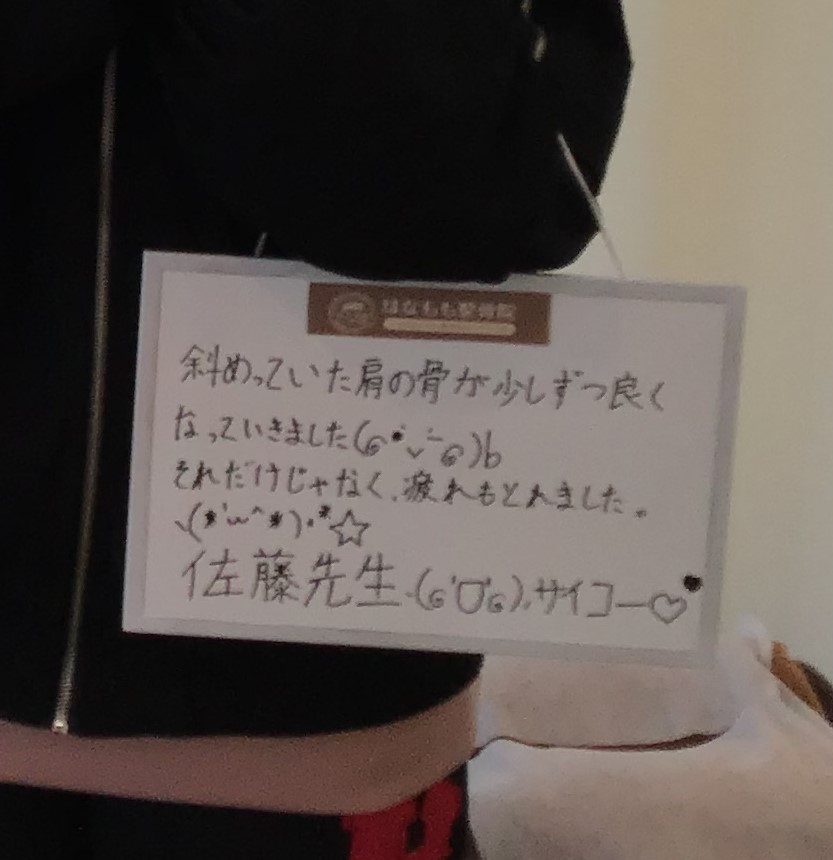 はなもも整骨院
斜めっていた肩の骨が少しずつ良く
なっていきました(๑•̀ᴗ-๑)b
それだけじゃなく、疲れもとれました。
ヽ(*'ω^*)・*☆
佐藤先生(๑'ꇴ'๑)サイコー♡